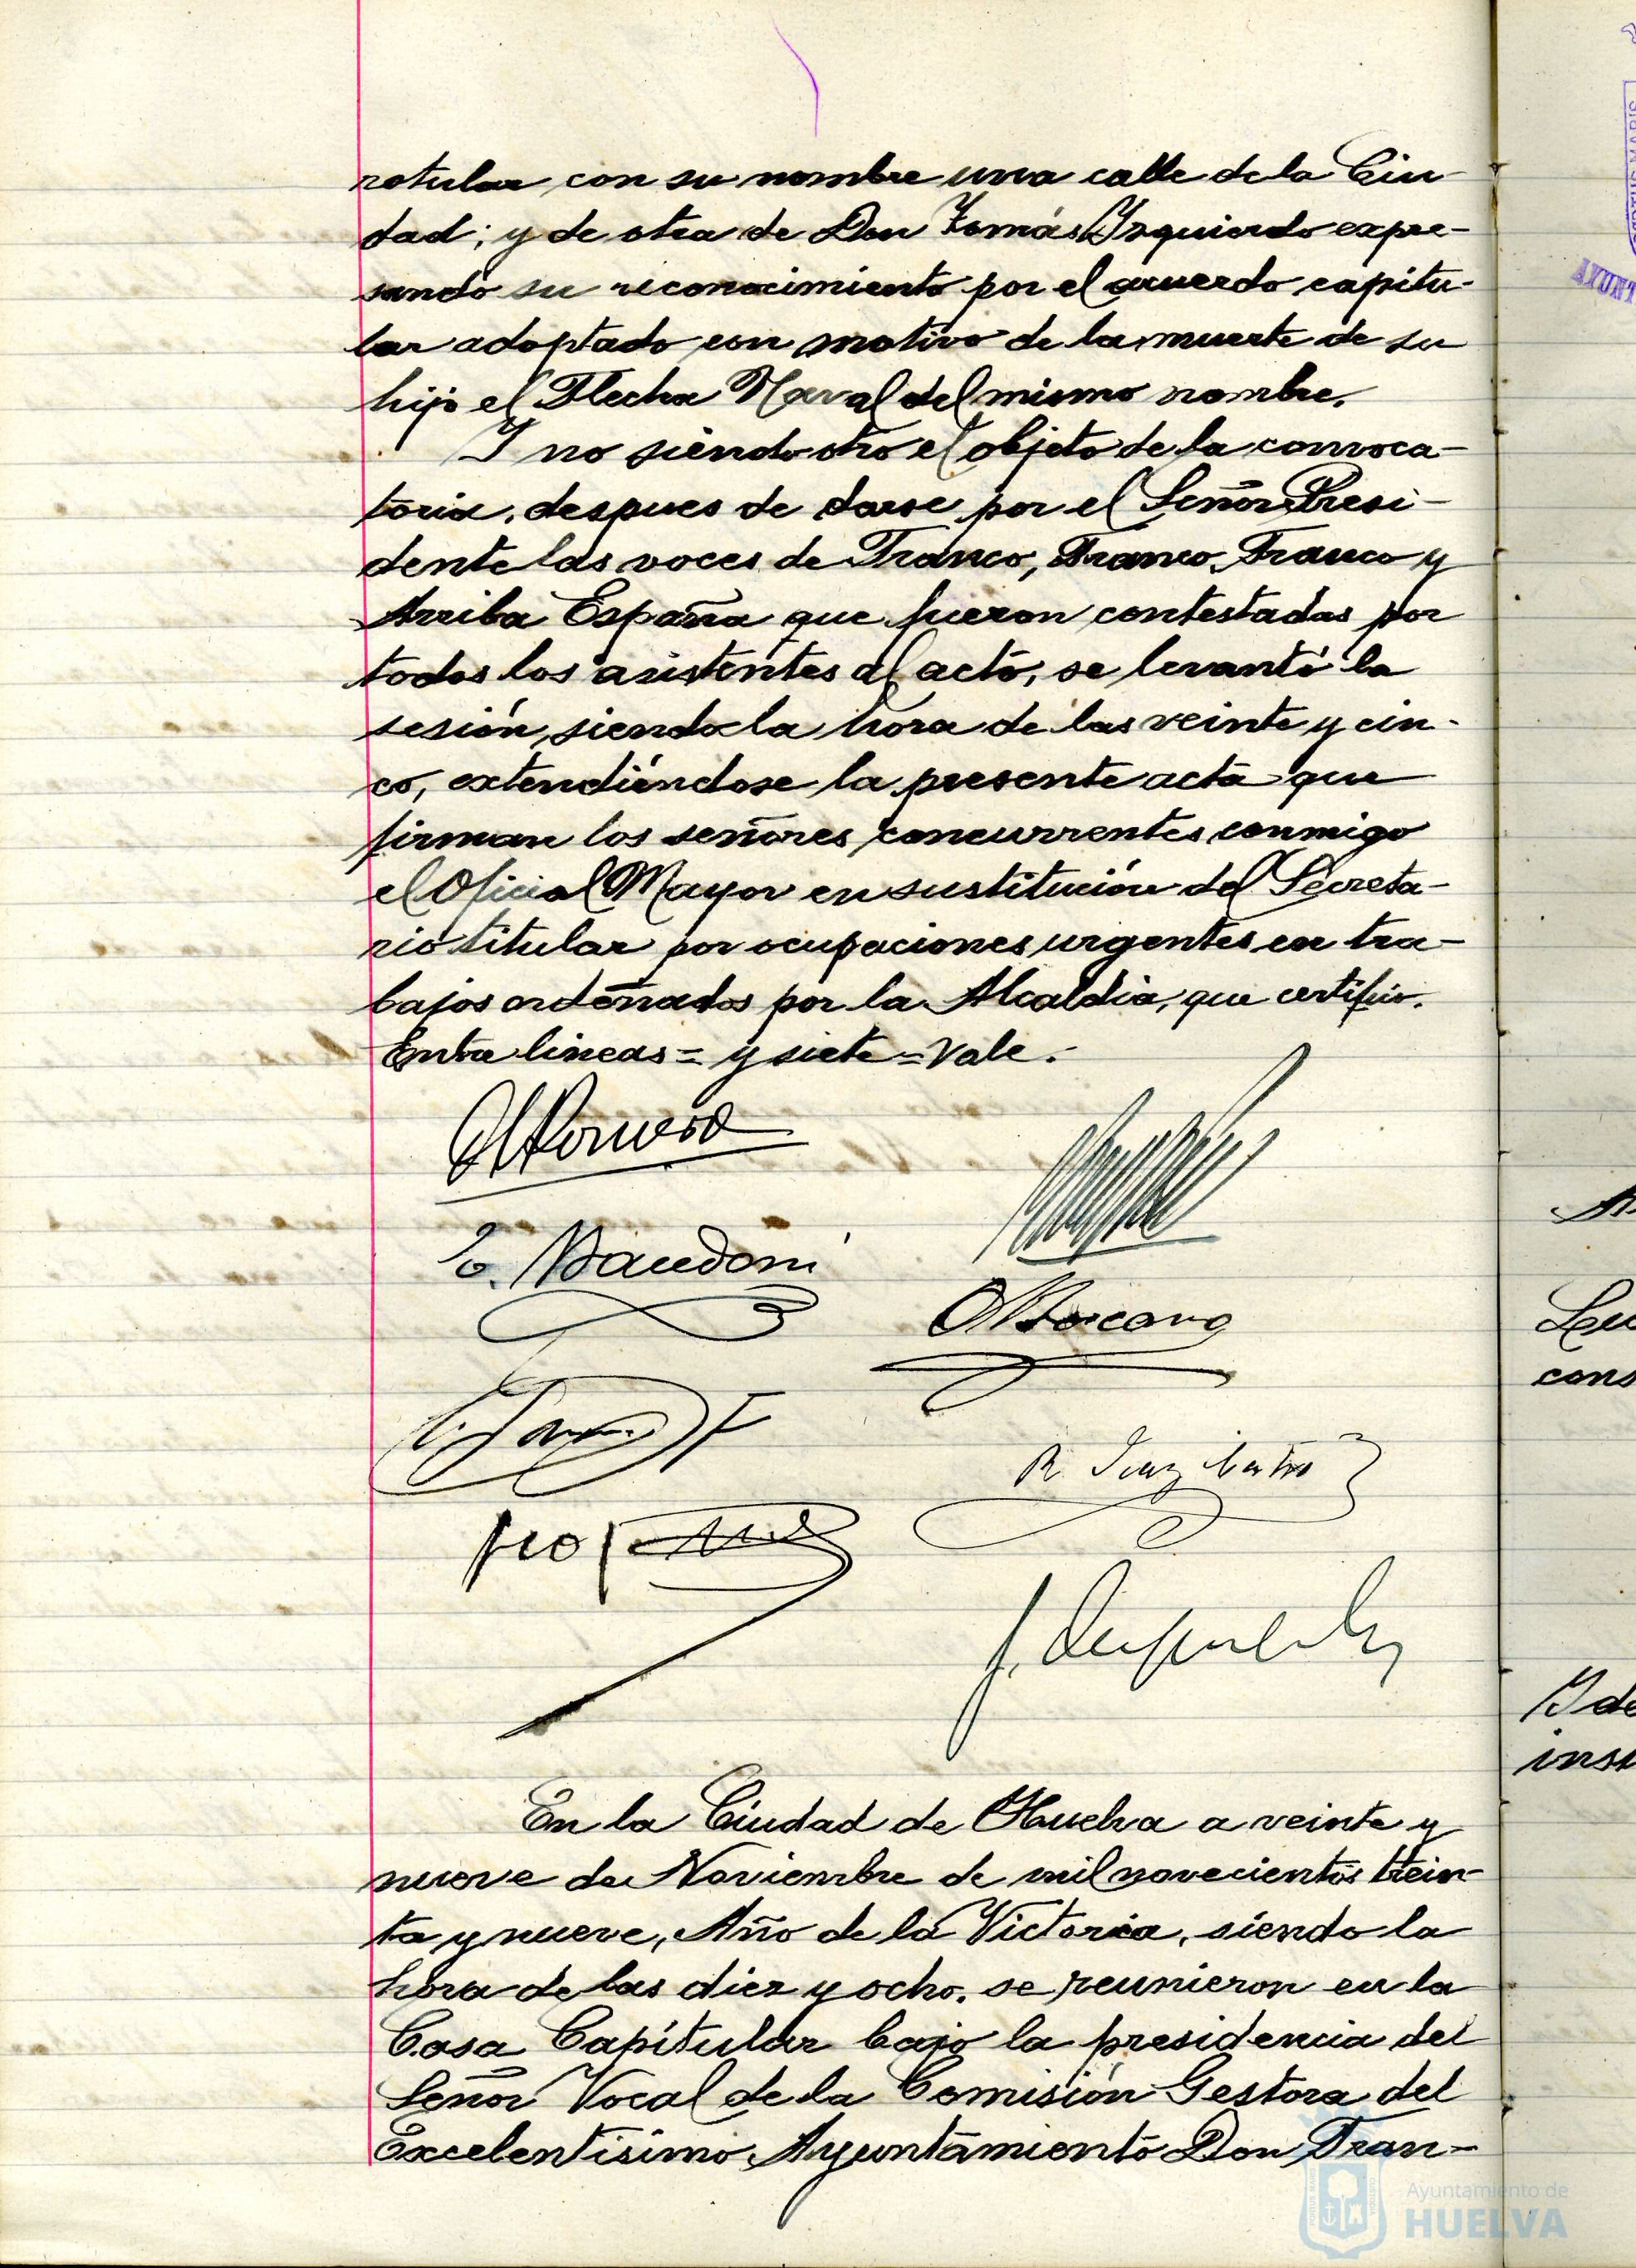 rotular con su nombre una calle de la Ciu-
dad; y de otra de Don Tomás Izquierdo expre-
sando su reconocimiento por el acuerdo capitu-
lar adoptado con motivo de la muerte de su
hijo el Flecha Naval del mismo nombre.
Y no siendo otro el objeto de la convoca-
toria, despues de darse por el Señor Presi-
dente las voces de Franco, Franco, Franco y
Arriba España que fueron contestadas por
todos los asistentes al acto, se levantó la
sesión, siendo la hora de las veinte y cin-
co, extendiéndose la presente acta que
firman los señores concurrentes conmigo
el Oficial Mayor en sustitución del Secreta-
rio titular por ocupaciones urgentes en tra-
bajos ordenados por la Alcaldia, que certifico.
Entre lineas = y siete = Vale.
R. Diaz Castro
En la Ciudad de Huelva a veinte y
nueve de Noviembre de mil novecientos trein-
ta y nueve, Año de la Victoria, siendo la
hora de las diez y ocho, se reunieron en la
Casa Capitular bajo la presidencia del
Señor Vocal de la Comisión Gestora del
Excelentisimo Ayuntamiento Don Fran-
Ayuntamiento de
HUELVA